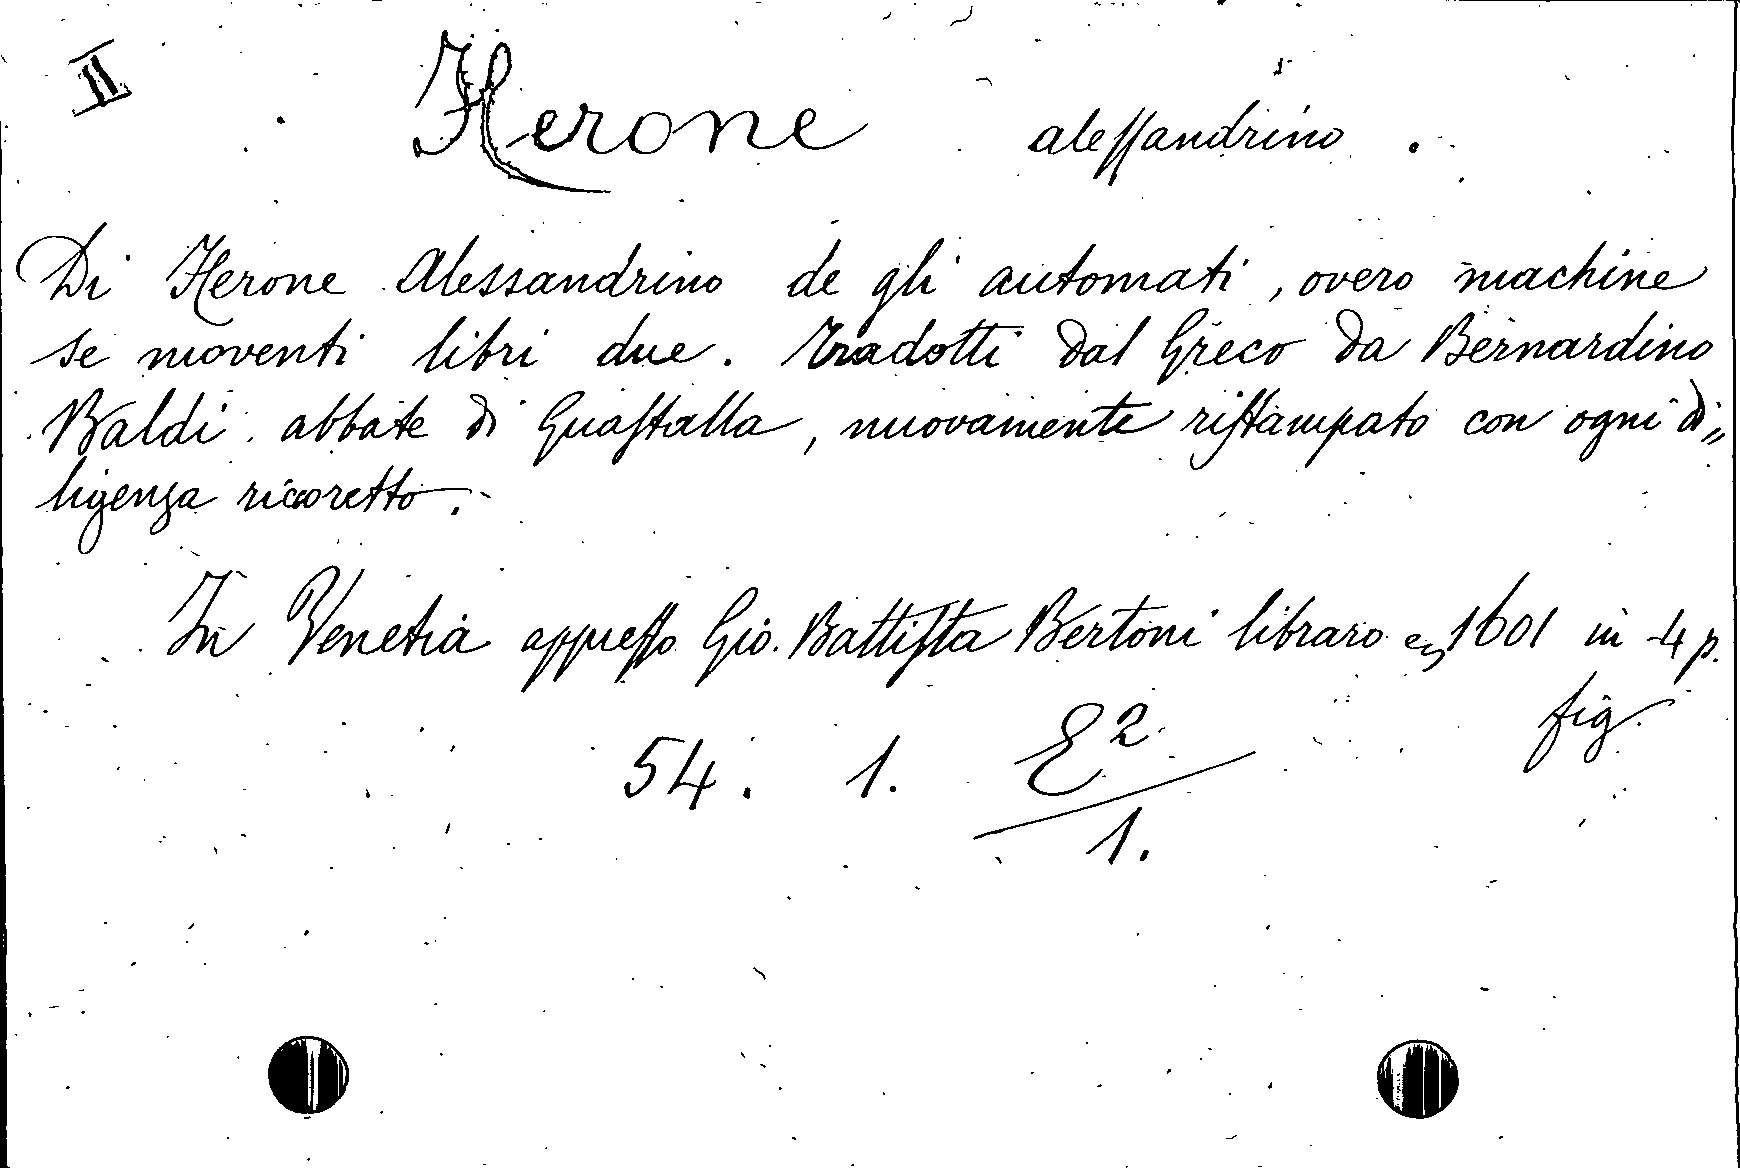 II
Herone alessandrino .
Di Herone Alessandrino de gli automati, overo machine
se moventi libri due. Tradotti dal Greco da Bernardino
Baldi abbate di Guastalla, nuovamente ristampato con ogni di„
ligenza ricoretto.
In Venetia appresso Gio. Battista Bertoni libraro 1601 in 4 p.
fig.
54. 1. E2
1.